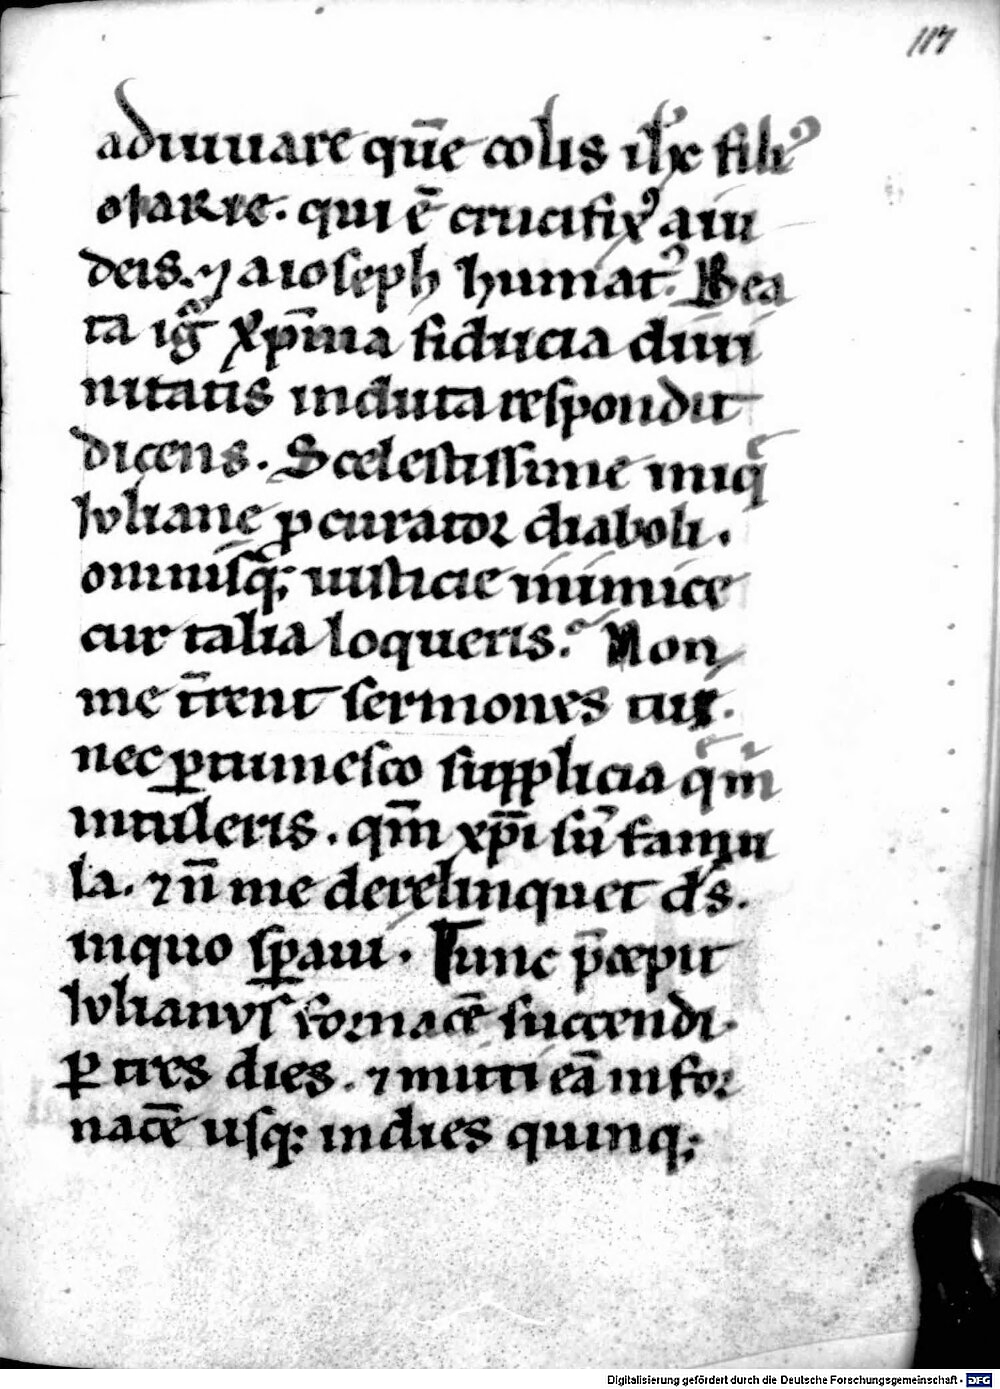 117
adiuuare quē colis ih̄c xc fili᷒
MARIE. qui ē crucifix᷒ a iu
deis. ⁊ a ioseph humat᷒. Bea
ta igͥ xp̄ina fiducia diui
nitatis induta respondit
dicens. Scelestissime iniq̄
Iuliane ꝓcurator diaboli.
omnisq; iusticie inimice
cur talia loqueris. Non
me t̄rent sermones tui.
nec ꝑtimesco supplicia q̄ m̄
intuleris. qm̄ xp̄i sū famu
la. ⁊ n̄ me derelinquet d̄s.
inquo sꝑaui. Tunc p̄cepit
Iulianus fornacē succendi
ꝑ tres dies. ⁊ mitti eā in for
nacē usq; in dies quinq;
Digitalisierung gefördert durch die Deutsche Forschungsgemeinschaft - DFG